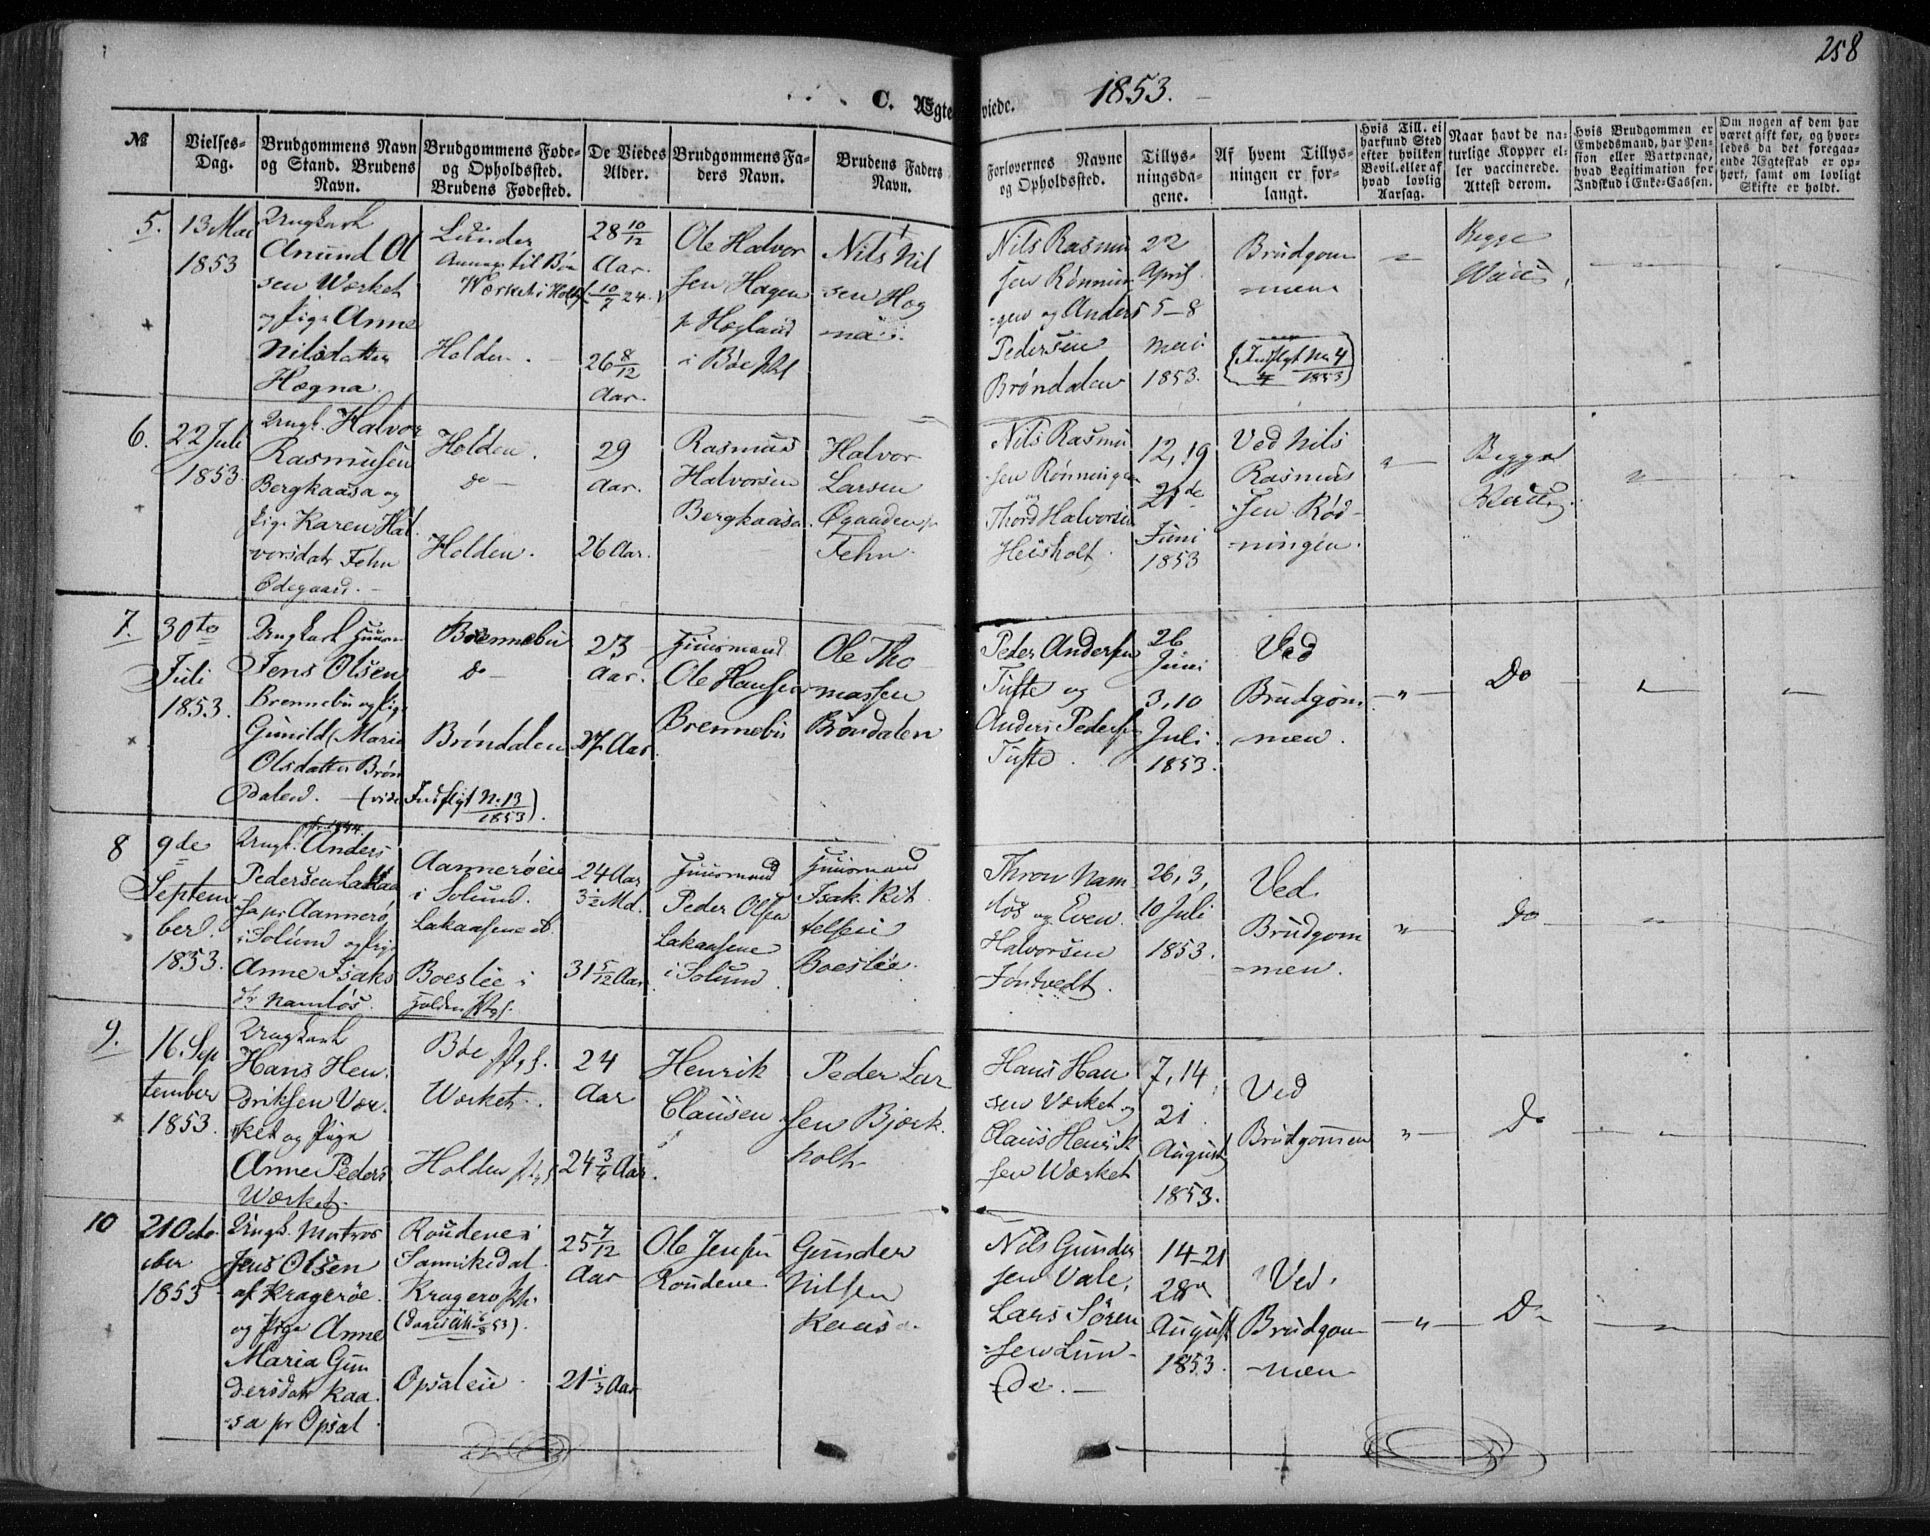 258
C. Ægteviede. 1853.
№
Vielses-Dag.
Brudgommens Navn og Stand. Brudens Navn.
Brudgommens Føde- og Opholdssted. Brudens Fødested.
De Viedes Alder.
Brudgommens Faders Navn.
Brudens Faders Navn.
Forlovernes Navne og Opholdssted.
Tillysningsdagene.
Af hvem Tillysningen er forlangt.
Hvis Till. ei har fund Sted efter hvilken Bevil. eller af hvad lovlig Aarsag.
Naar havt de naturlige Kopper eller vaccinerede. Attest derom.
Hvis Brudgommen er Embedsmand, har Pension eller Vartpenge, hvad Legitimation for Indskud i Enke-Cassen.
Om nogen af dem har været gift før, og hvorledes da det foregaaende Ægteskab er ophørt, samt om lovligt Skifte er holdt.
5.
13 Mai
1853
Ungkarl
Anund Ol
sen Værket
og Pige Anne
Nilsdatter
Hægna
Lunder
Holden.
28 10/12
Aar.
26 8/12
Aar.
Ole Halvor
sen Hagen
p Hægland
i Bøe
Nils Nil
sen Hæg
na.
Nils Rasmu
sen Rønnin
gen og Anders
Pedersen
Brøndalen
22
April
5-8
Mai
1853.
Brudgom
men
1853
Begge
6.
22 Juli
1853
Ungk. Halvor
Rasmusen
Bergkaasa og
Pige Karen Hal
vorsdatr Fehn
Ødegaard.
Holden.
do
Holden.
29
Aar.
26 Aar.
Rasmus
Halvorsen
Bergkaasa
Halvor
Larsen
Fehn
Nils Rasmu
sen Rønningen
og
Thord Halvorsen
Heisholt.
12, 19
21de
Juni
1853
Ved Nils
Rasmus
sen Rød-
ningen.
Begge
7.
30te
Juli
1853.
Ungkarl
Jens Olsen
Brennebu og Pige
Gunild Maria
Olsdatter Brøn
dalen. (vide
Brennebu
do
Brøndalen
N. 13
1853).
23
Aar.
27 Aar.
Huusmand
Ole Hansen
Brennebu
Ole Tho
massen
Brøndalen
Peder Andersen
Tufte og
Anders Pedersen
Tufte.
26
Juni
3, 10
Juli
1853.
Ved
Brudgom
men.
Do
8
9de
Septem
ber.
1853.
Ungk. Anders
Pedersen
Aannerø
i Solund og Pige
Anne Isaks
dr Namløs.
Aannerøen
i Solund.
Boeslie i
Holden
24 Aar
3½ Md.
31 5/12 Aar
Huusmand
Peder Olsen
Lakaasene
i Solund.
Huusmand
Isak Kit
telsen
Boeslie.
Thron Nam
løs og Even
Halvorsen
Jøntvedt.
26, 3,
10 Juli
1853.
Ved
Brudgom
men.
Do
9.
16. Sep
tember
1853.
Ungkarl
Hans Hen
driksen Vær
ket og Pige
Anne Peders
Værket.
Bøe
Værket.
Holden
24
Aar
24 3/4 Aar.
Henrik
Clausen
Peder Lar
sen Bjerk
holt
Hans Han
sen Værket og
Claus Henrik
sen Værket
7, 14
21
August
1853.
Ved
Brudgommen
Do
10
21 Octo
ber
1853
Ungk. Matros
Jens Olsen
af Kragerøe
og Pige Anne
Maria Gun
dersdatr Kaa
sa pr Opsal
Roudene i
Sannikedal
Kragerø
Opsaleie
25 7/12
Aar
21 1/3 Aar
Ole Jensen
Roudene
Gunder
Nilsen
Kaas
Nils Gunder
sen Vale,
Lars Søren
sen Lun
de.
14-21
28de
August
1853.
Ved
Brudgom
men
Do